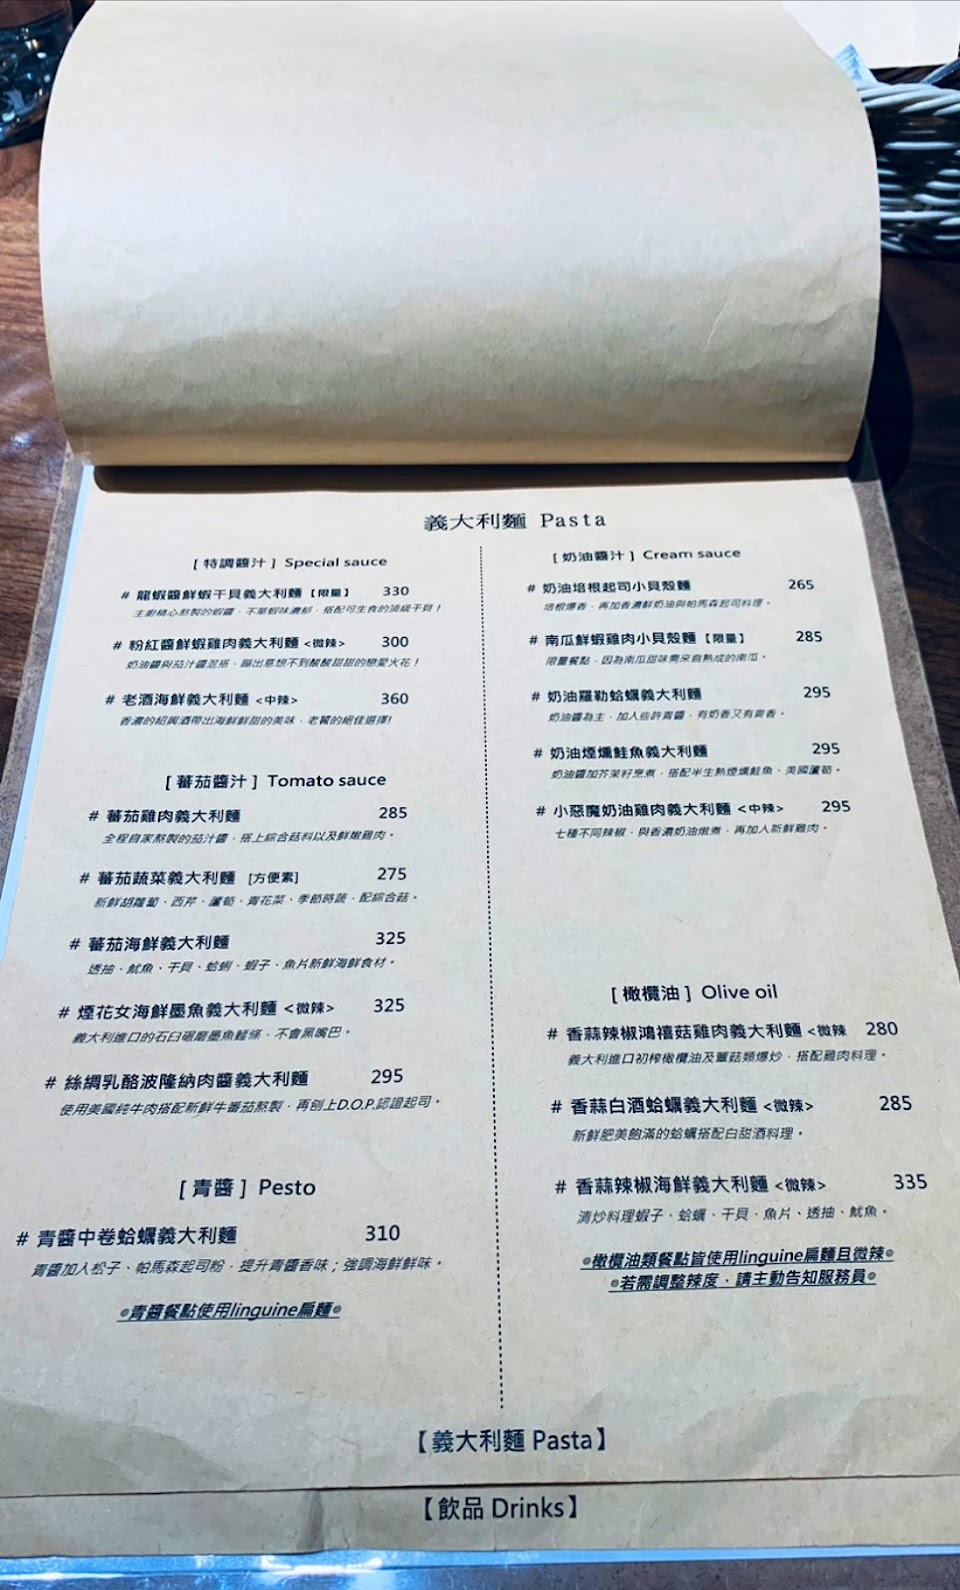 義大利麵 Pasta
[ 特調醬汁 ] Special sauce
# 龍蝦醬鮮蝦干貝義大利麵【限量】 330
主廚精心熬製的蝦醬，不單蝦味濃郁，搭配可生食的頂級干貝！
# 粉紅醬鮮蝦雞肉義大利麵 <微辣> 300
奶油醬與茄汁醬混搭，蹦出意想不到酸酸甜甜的戀愛火花！
# 老酒海鮮義大利麵 <中辣> 360
香濃的紹興酒帶出海鮮鮮甜的美味，老饕的絕佳選擇!
[ 蕃茄醬汁 ] Tomato sauce
# 蕃茄雞肉義大利麵 285
全程自家熬製的茄汁醬，搭上綜合菇料以及鮮嫩雞肉。
# 蕃茄蔬菜義大利麵 [方便素] 275
新鮮胡蘿蔔、西芹、蘆筍、青花菜、季節時蔬，配綜合菇。
# 蕃茄海鮮義大利麵 325
透抽、魷魚、干貝、蛤蜊、蝦子、魚片新鮮海鮮食材。
# 煙花女海鮮墨魚義大利麵 <微辣> 325
義大利進口的石臼碾磨墨魚麵條，不會黑嘴巴。
# 絲綢乳酪波隆納肉醬義大利麵 295
使用美國純牛肉搭配新鮮牛番茄熬製，再刨上D.O.P.認證起司。
[ 青醬 ] Pesto
# 青醬中卷蛤蠣義大利麵 310
青醬加入松子、帕馬森起司粉，提升青醬香味；強調海鮮鮮味。
◎青醬餐點使用linguine扁麵◎
[ 奶油醬汁 ] Cream sauce
# 奶油培根起司小貝殼麵 265
培根爆香，再加香濃鮮奶油與帕馬森起司料理。
# 南瓜鮮蝦雞肉小貝殼麵【限量】 285
限量餐點，因為南瓜甜味需來自熟成的南瓜。
# 奶油羅勒蛤蠣義大利麵 295
奶油醬為主，加入些許青醬，有奶香又有青香。
# 奶油煙燻鮭魚義大利麵 295
奶油醬加芥茉籽烹煮，搭配半生熟煙燻鮭魚、美國蘆筍。
# 小惡魔奶油雞肉義大利麵 <中辣> 295
七種不同辣椒，與香濃奶油燉煮，再加入新鮮雞肉。
[ 橄欖油 ] Olive oil
# 香蒜辣椒鴻禧菇雞肉義大利麵 <微辣 280
義大利進口初榨橄欖油及蕈菇類爆炒，搭配雞肉料理。
# 香蒜白酒蛤蠣義大利麵 <微辣> 285
新鮮肥美飽滿的蛤蠣搭配白甜酒料理。
# 香蒜辣椒海鮮義大利麵 <微辣> 335
清炒料理蝦子、蛤蠣、干貝、魚片、透抽、魷魚。
◎橄欖油類餐點皆使用linguine扁麵且微辣◎
◎若需調整辣度，請主動告知服務員◎
【義大利麵 Pasta】
【飲品 Drinks】